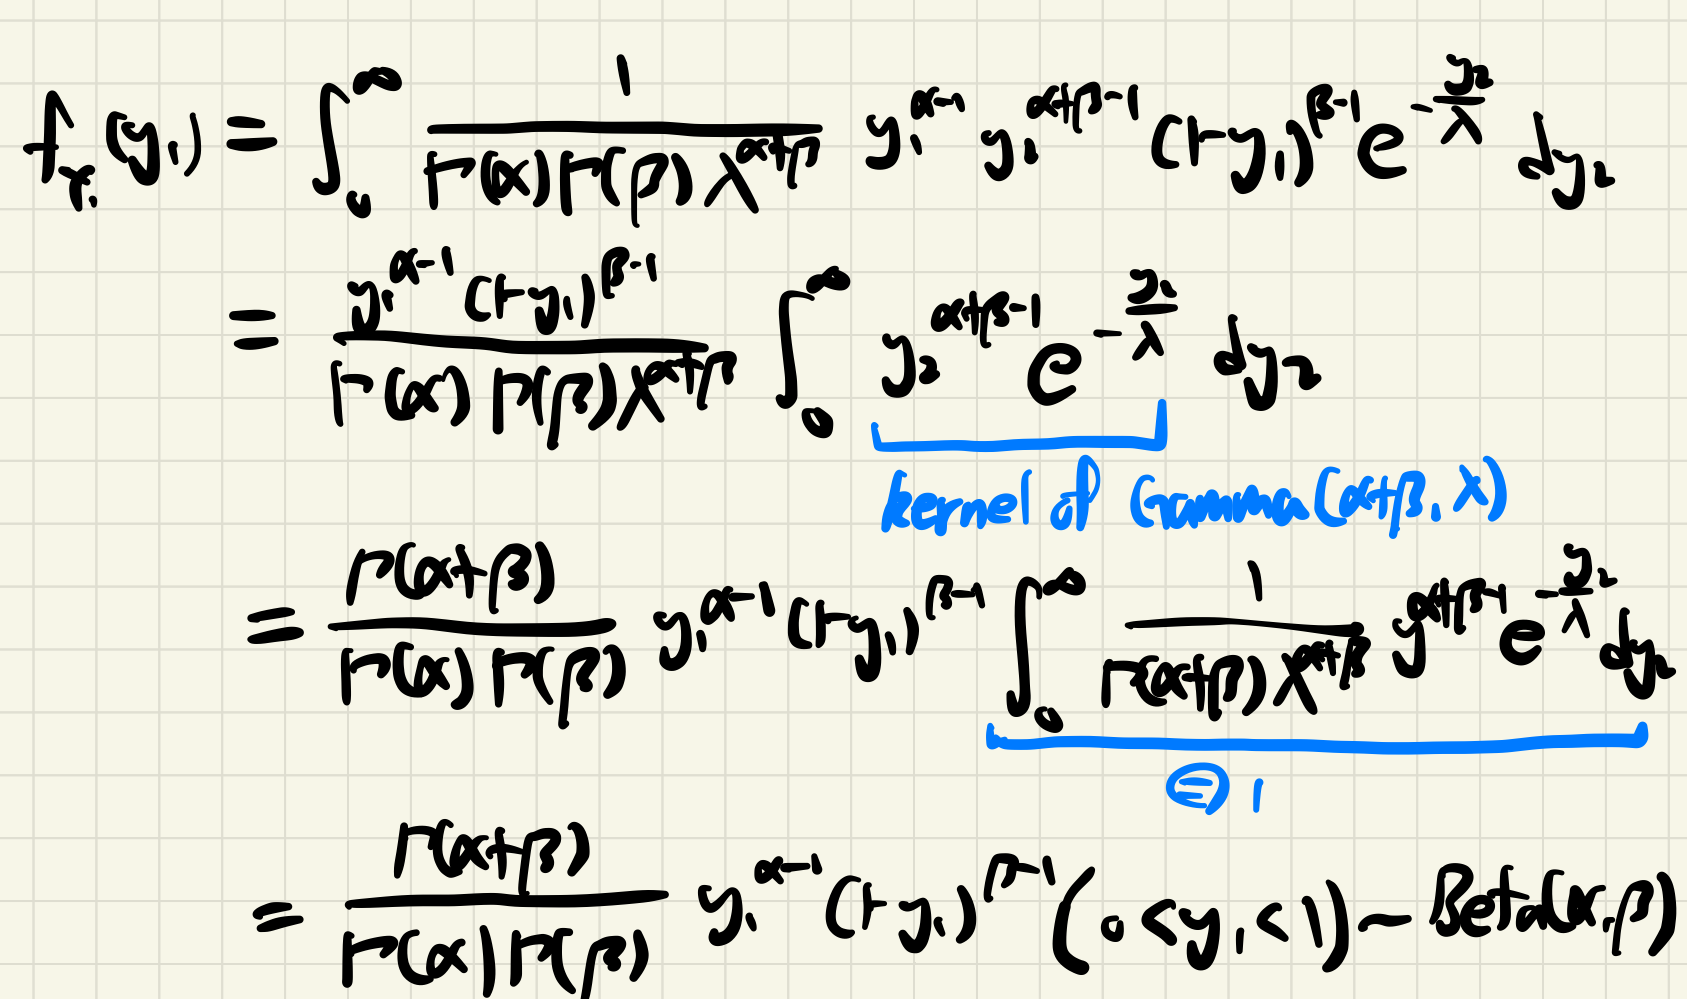 f_{Y_1}(y_1) = ∫_0^∞ \frac{1}{Γ(α)Γ(β)λ^{α+β}} y_1^{α-1} y_2^{α+β-1} (1-y_1)^{β-1} e^{-\frac{y_2}{λ}} dy_2
= \frac{y_1^{α-1} (1-y_1)^{β-1}}{Γ(α)Γ(β)λ^{α+β}} ∫_0^∞ y_2^{α+β-1} e^{-\frac{y_2}{λ}} dy_2
kernel of Gamma(α+β, λ)
= \frac{Γ(α+β)}{Γ(α)Γ(β)} y_1^{α-1} (1-y_1)^{β-1} ∫_0^∞ \frac{1}{Γ(α+β)λ^{α+β}} y^{α+β-1} e^{-\frac{y_2}{λ}} dy_2
= 1
= \frac{Γ(α+β)}{Γ(α)Γ(β)} y_1^{α-1} (1-y_1)^{β-1} (0<y_1<1) ~ Beta(α,β)